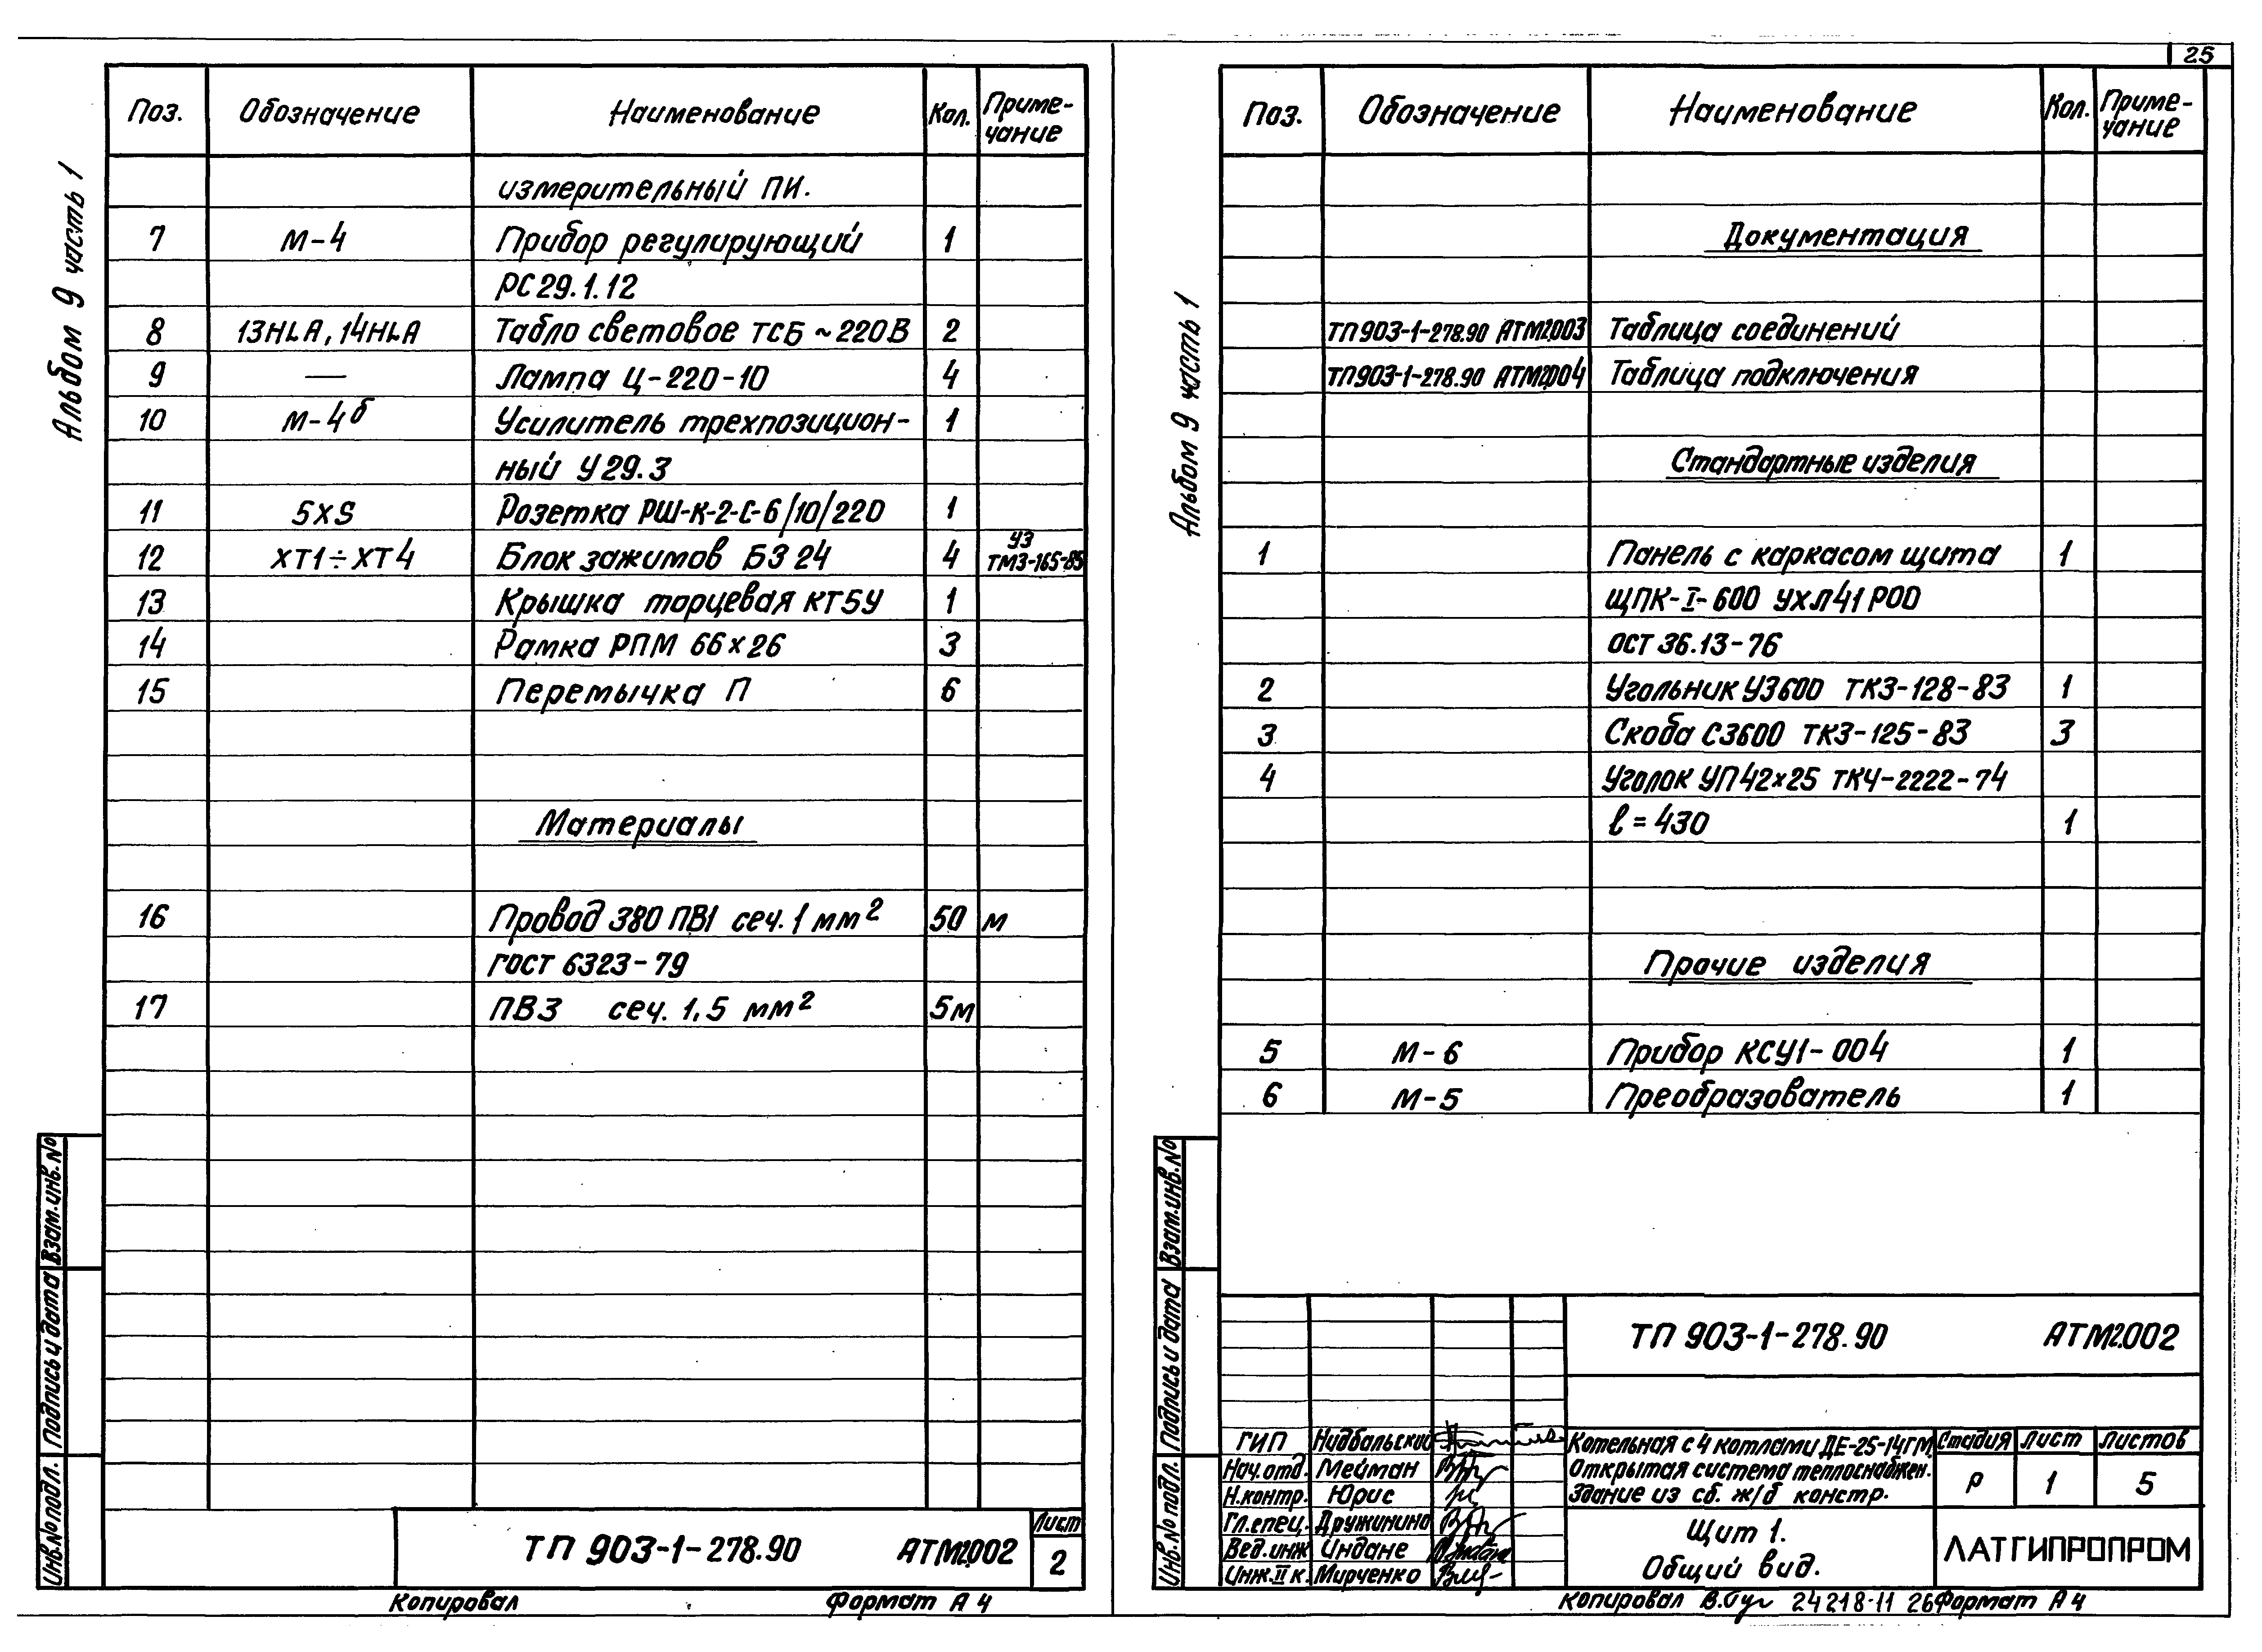 25
Альбом 9 часть 1
Поз. Обозначение Наименование Кол. Приме-
чание
измерительный ПИ.
7 М-4 Прибор регулирующий 1
РС29.1.12
8 13HLA, 14HLA Табло световое ТСБ ~220В 2
9 — Лампа Ц-220-10 4
10 М-4б Усилитель трехпозицион- 1
ный У29.3
11 5XS Розетка РШ-К-2-С-6/10/220 1
12 ХТ1÷ХТ4 Блок зажимов БЗ 24 4 УЗ
ТМ3-165-85
13 Крышка торцевая КТ5У 1
14 Рамка РПМ 66х26 3
15 Перемычка П 6
Материалы
16 Провод 380 ПВ1 сеч. 1 мм² 50 м
ГОСТ 6323-79
17 ПВ3 сеч. 1,5 мм² 5м
Взам.инв.№
Подпись и дата
Инв.№подл.
ТП 903-1-278.90 АТМ2.002
Лист
2
Копировал Формат А4
Альбом 9 часть 1
Поз. Обозначение Наименование Кол. Приме-
чание
Документация
ТП903-1-278.90 АТМ2.003 Таблица соединений
ТП903-1-278.90 АТМ2.004 Таблица подключения
Стандартные изделия
1 Панель с каркасом щита 1
ЩПК-I-600 УХЛ41Р00
ОСТ 36.13-76
2 Угольник У3600 ТК3-128-83 1
3 Скоба С3600 ТК3-125-83 3
4 Уголок УП42х25 ТК4-2222-74
ℓ=430 1
Прочие изделия
5 М-6 Прибор КСУ1-004 1
6 М-5 Преобразователь 1
Взам.инв.№
Подпись и дата
Инв.№подл.
ТП 903-1-278.90 АТМ2.002
ГИП Нидбальский
Нач.отд. Мейман
Н.контр. Юрис
Гл.спец. Дружинина
Вед.инж Индане
Инж.II к. Мирченко
Котельная с 4 котлами ДЕ-25-14ГМ
Открытая система теплоснабжен.
Здание из сб. ж/б констр.
Стадия Лист Листов
Р 1 5
Щит 1.
Общий вид.
ЛАТГИПРОПРОМ
Копировал 24218-11 26 Формат А4